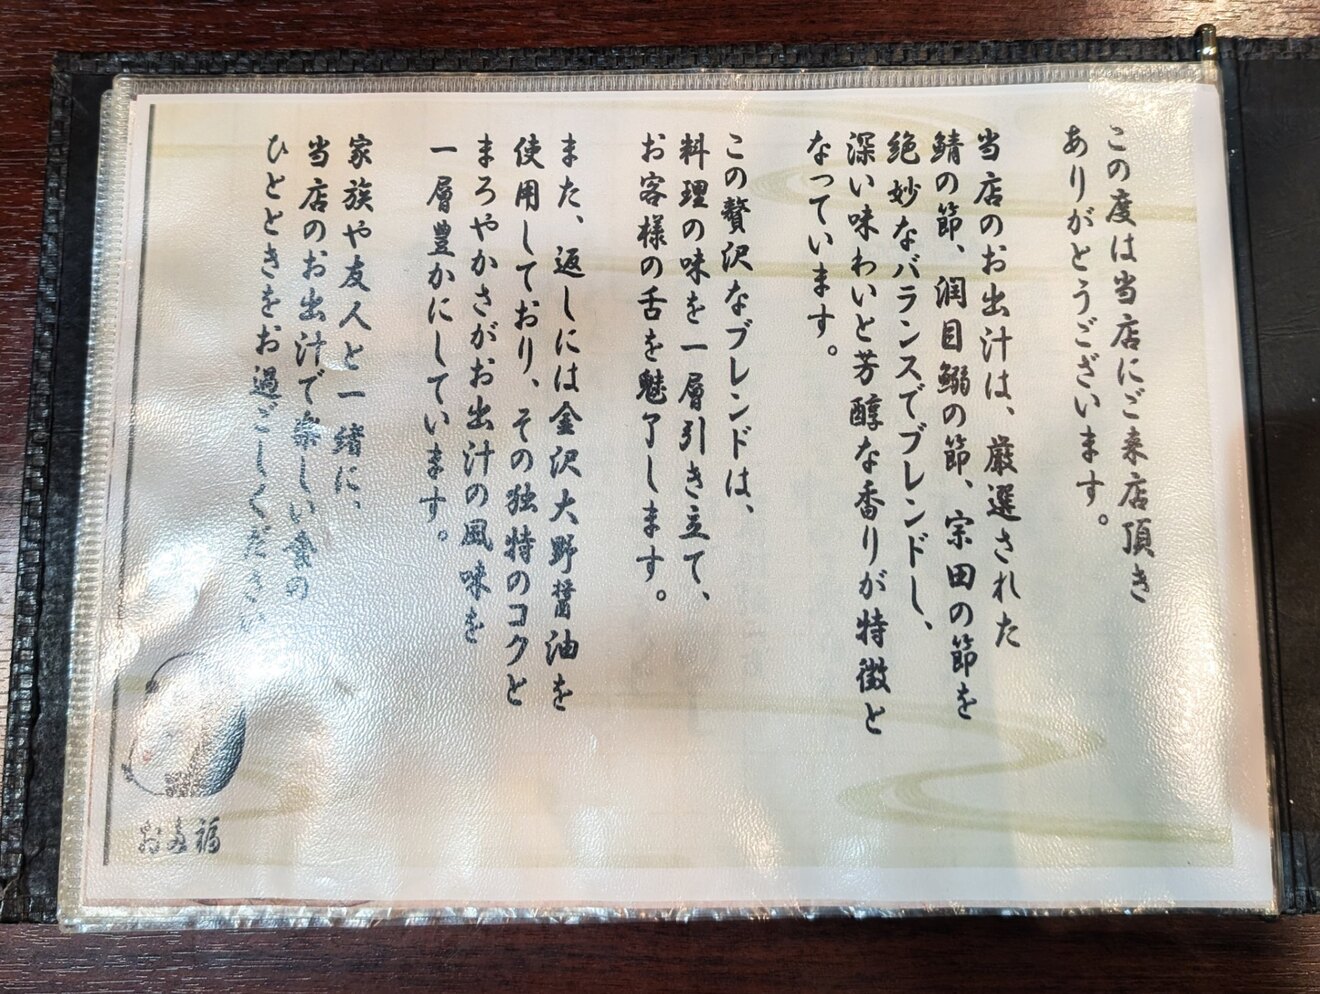 この度は当店にご来店頂き
ありがとうございます。
当店のお出汁は、厳選された
鯖の節、潤目鰯の節、宗田の節を
絶妙なバランスでブレンドし、
深い味わいと芳醇な香りが特徴と
なっています。
この贅沢なブレンドは、
料理の味を一層引き立て、
お客様の舌を魅了します。
また、返しには金沢大野醤油を
使用しており、その独特のコクと
まろやかさがお出汁の風味を
一層豊かにしています。
家族や友人と一緒に、
当店のお出汁で楽しい食の
ひとときをお過ごしください
お多福